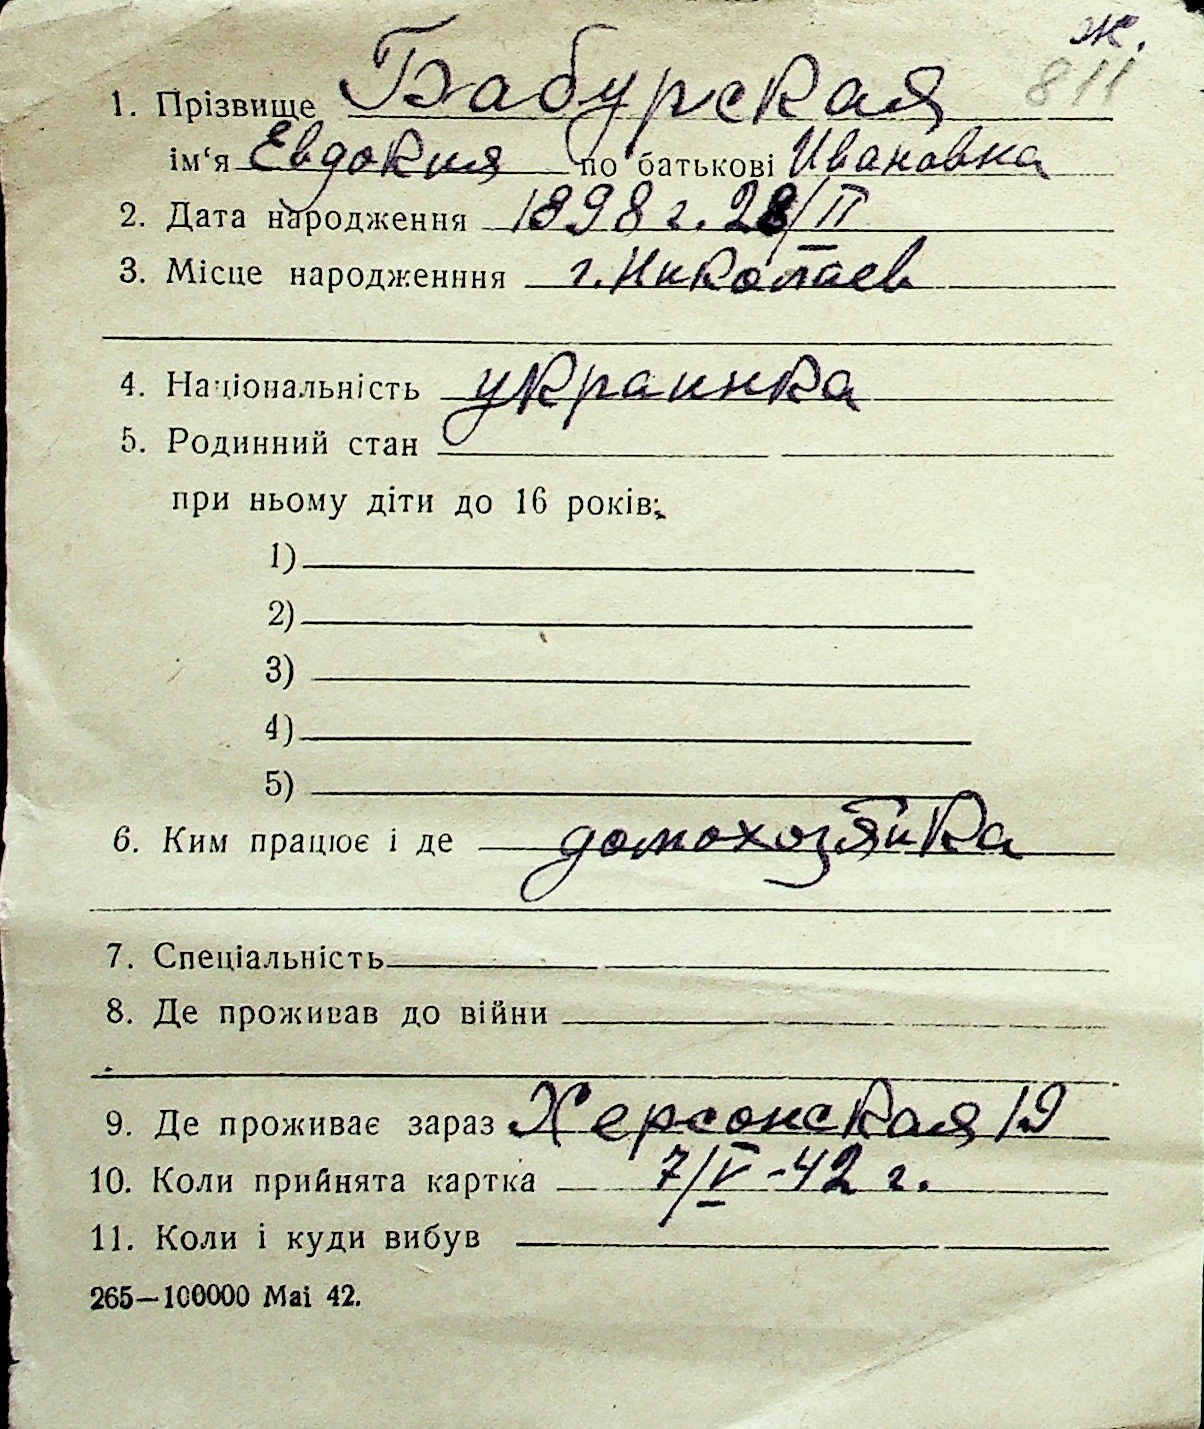 ж.
811
1. Прізвище Бабурская
ім‘я Евдокия по батькові Ивановна
2. Дата народження 1898 г. 28/II
3. Місце народженння г. Николаев
4. Національність украинка
5. Родинний стан
при ньому діти до 16 років:
1)
2)
3)
4)
5)
6. Ким працює і де домохозяйка
7. Спеціальність
8. Де проживав до війни
9. Де проживає зараз Херсонская 19
10. Коли прийнята картка 7/V-42 г.
11. Коли і куди вибув
265—100000 Mai 42.